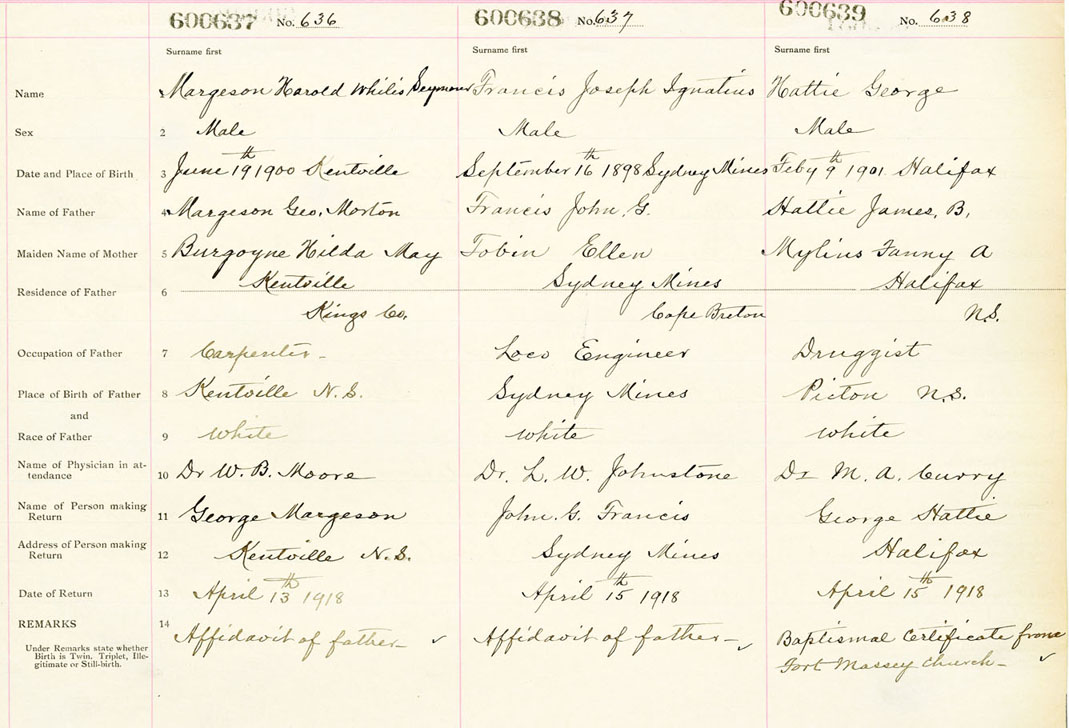 600637 No. 636 600638 No. 637 600639 No. 638
Surname first Surname first Surname first
Name 1 Margeson Harold Whilis Seymour Francis Joseph Ignatius Hattie George
Sex 2 Male Male Male
Date and Place of Birth 3 June 19th 1900 Kentville September 16th 1898 Sydney Mines Feby 9th 1901 Halifax
Name of Father 4 Margeson Geo. Morton Francis John G. Hattie James, B.
Maiden Name of Mother 5 Burgoyne Hilda May Tobin Ellen Mylius Fanny A
Residence of Father 6 Kentville Sydney Mines Halifax
Kings Co. Cape Breton N.S.
Occupation of Father 7 Carpenter - Loco Engineer Druggist
Place of Birth of Father 8 Kentville N.S. Sydney Mines Picton N.S.
and
Race of Father 9 White white white
Name of Physician in at-
tendance 10 Dr W. B. Moore Dr. L. W. Johnstone Dr M. A. Curry
Name of Person making
Return 11 George Margeson John. G. Francis George Hattie
Address of Person making
Return 12 Kentville N.S. Sydney Mines Halifax
Date of Return 13 April 13th 1918 April 15th 1918 April 15th 1918
REMARKS 14 Affidavit of father - ✓ Affidavit of father - ✓ Baptismal Certificate from
Under Remarks state whether
Birth is Twin. Triplet, Ille-
gitimate or Still-birth. Fort Massey Church - ✓